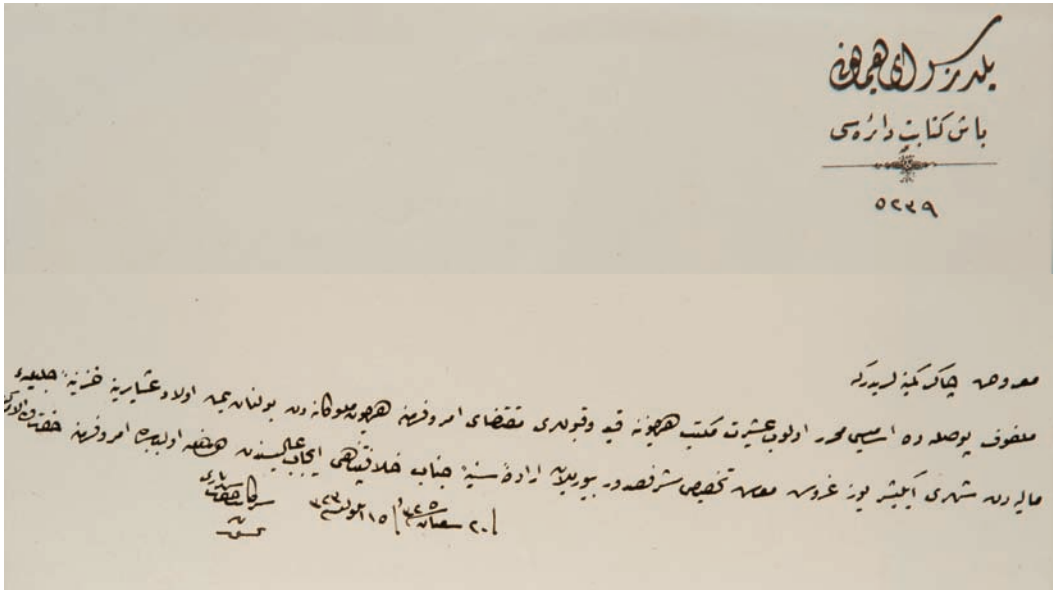 يلدز سراى همايونى
باش كتابت دائره سى
٥٢٣٩
معروض چاكر كمينه لريدركه
ملفوف پوصله ده اسامیسی محرر اولوب عشيرت مكتب همايونه قيد وقبولری مقتضای امر وفرمان همايون ملوكانه دن بولنان اولاد عشايره خزينهٔ جليلهٔ
ماليه دن شهری ایکیشر يوز غروش معاش تخصيصی شرفصدور بيوريلان ارادهٔ سنيهٔ جناب خلافتپناهی ايجاب عاليسندن اولمغله اولبابده امر وفرمان حضرت
٢٠ شعبان ٣٢٥ ١٥ ايلول ٣٢٣
سركاتب حضرت شهرياری
تحسين